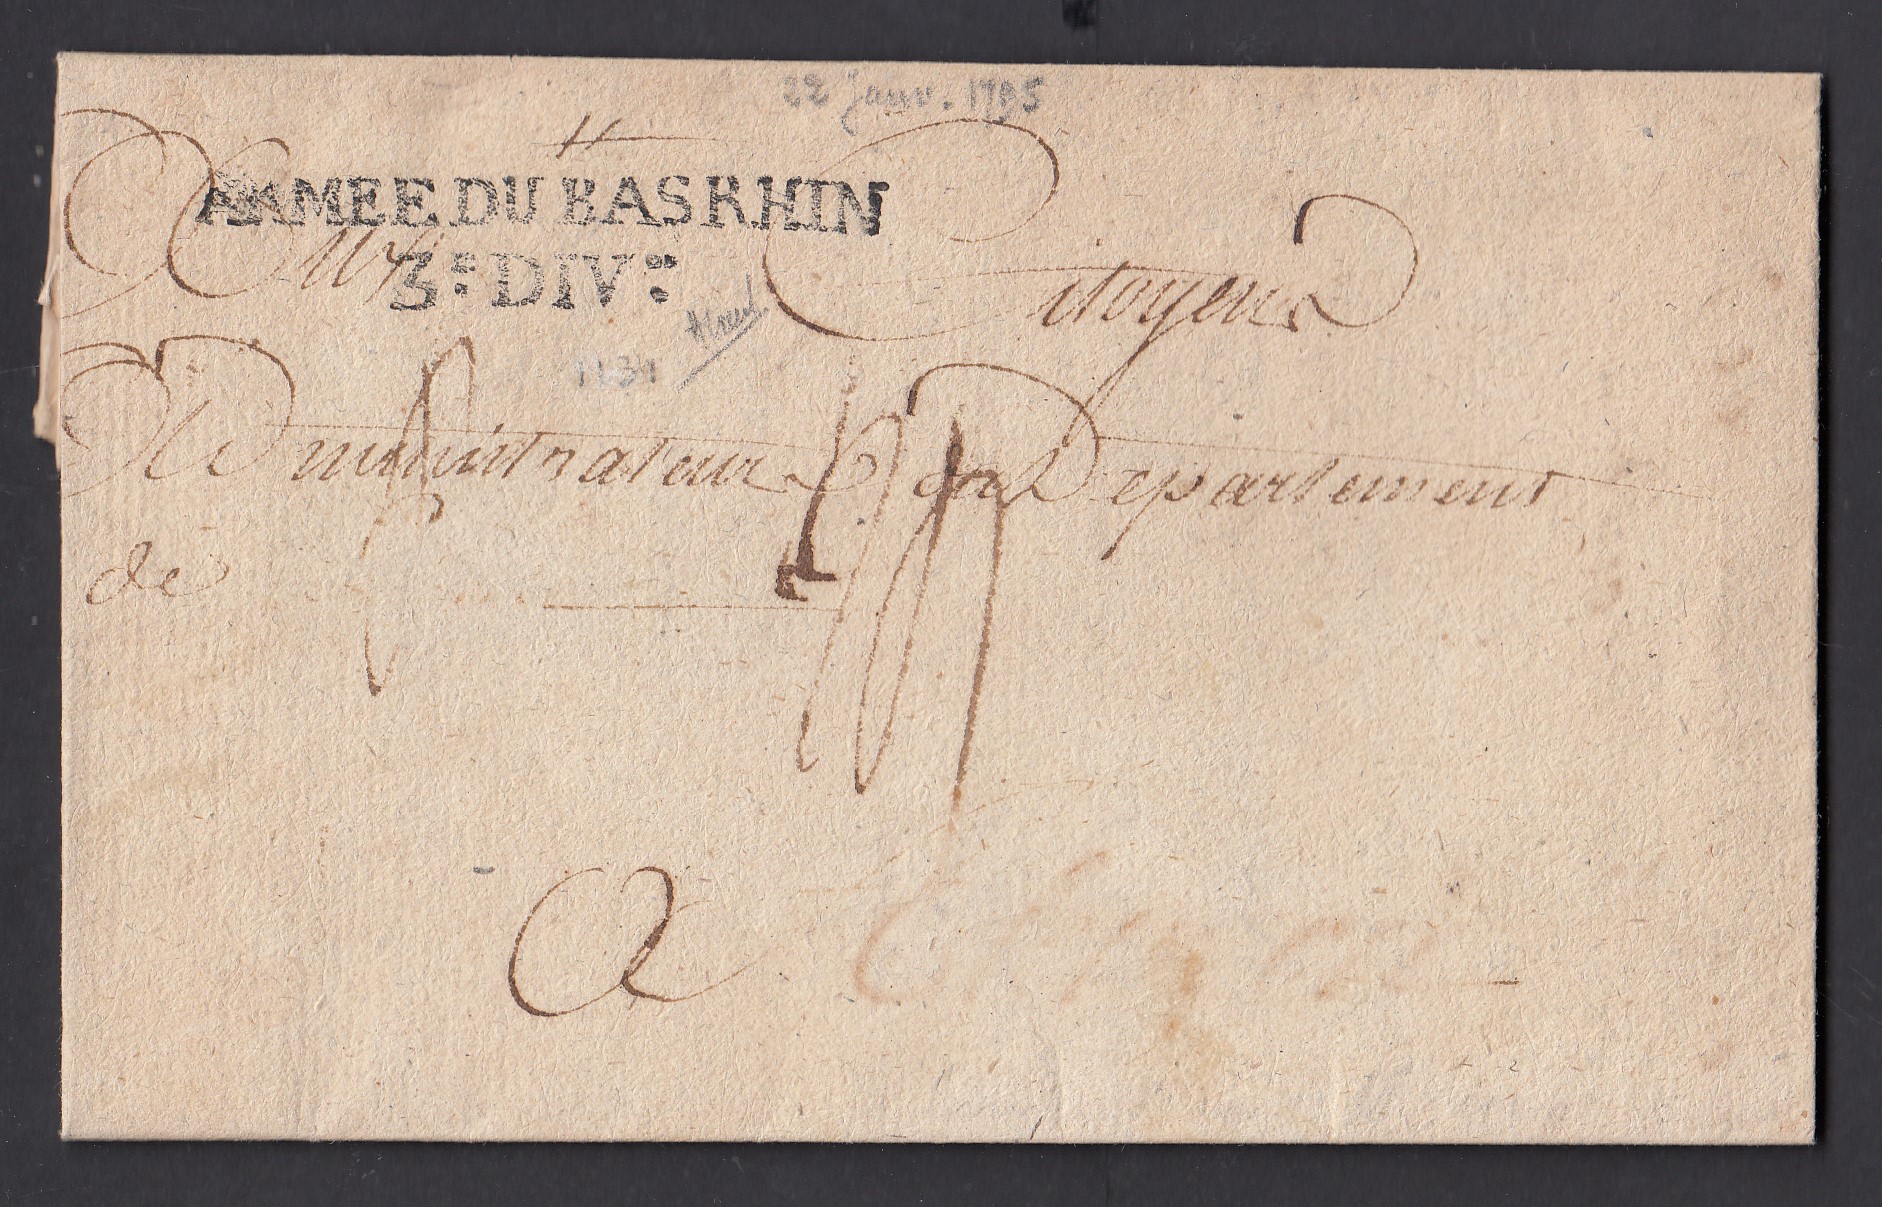 22 Janv. 1795
ARMEE DU BAS RHIN
3.e DIV.on
Aux Citoyens
1131
Administrateurs du Departement
de
A